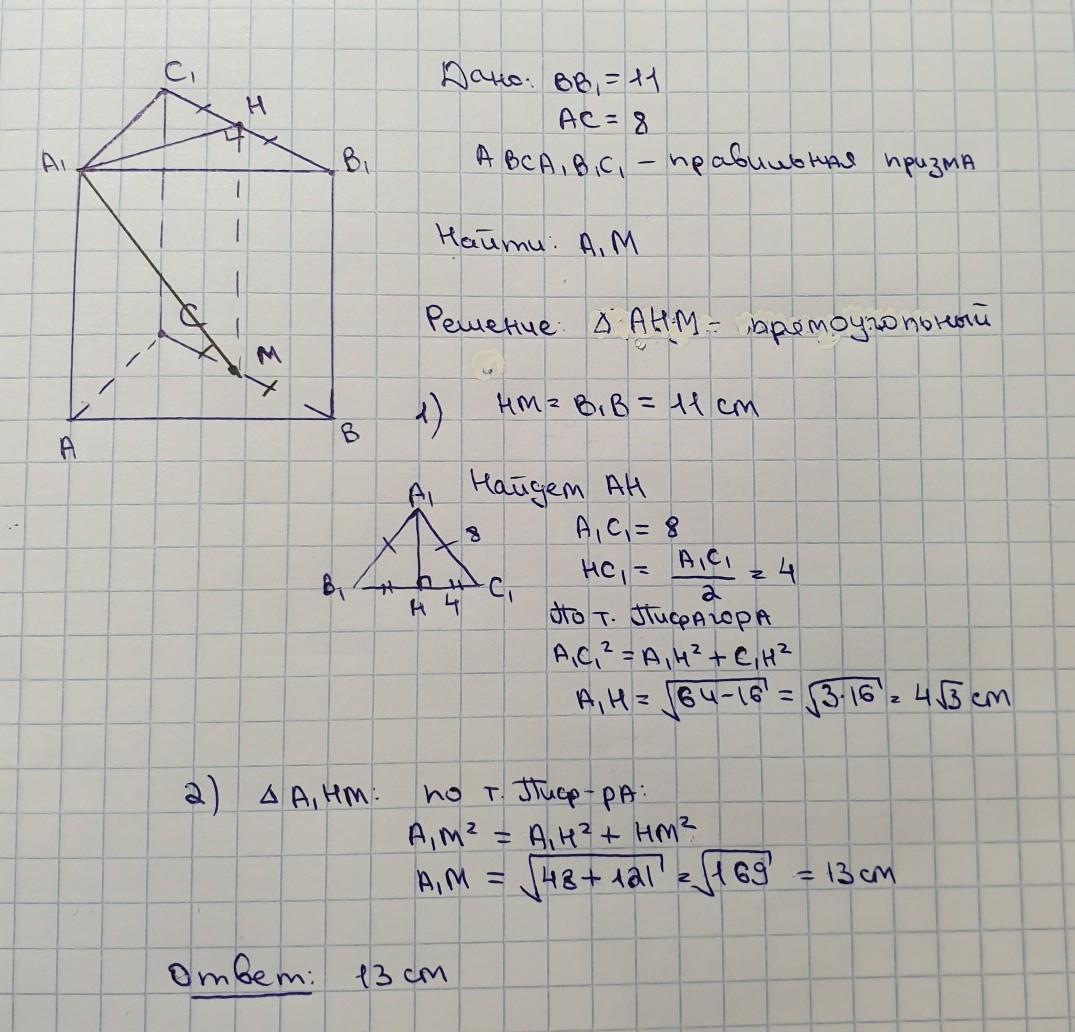 C₁
H
A₁
B₁
C
M
A
B
Дано: BB₁ = 11
AC = 8
ABCA₁B₁C₁ – правильная призма
Найти: A₁M
Решение: Δ AHM – прямоугольный
1) HM = B₁B = 11 см
Найдем AH
A₁
8
B₁
H
4
C₁
A₁C₁ = 8
HC₁ = A₁C₁/2 = 4
По т. Пифагора
A₁C₁² = A₁H² + C₁H²
A₁H = √(64-16) = √(3·16) = 4√3 см
2) Δ A₁HM: по т. Пиф-ра:
A₁M² = A₁H² + HM²
A₁M = √(48+121) = √169 = 13 см
Ответ: 13 см